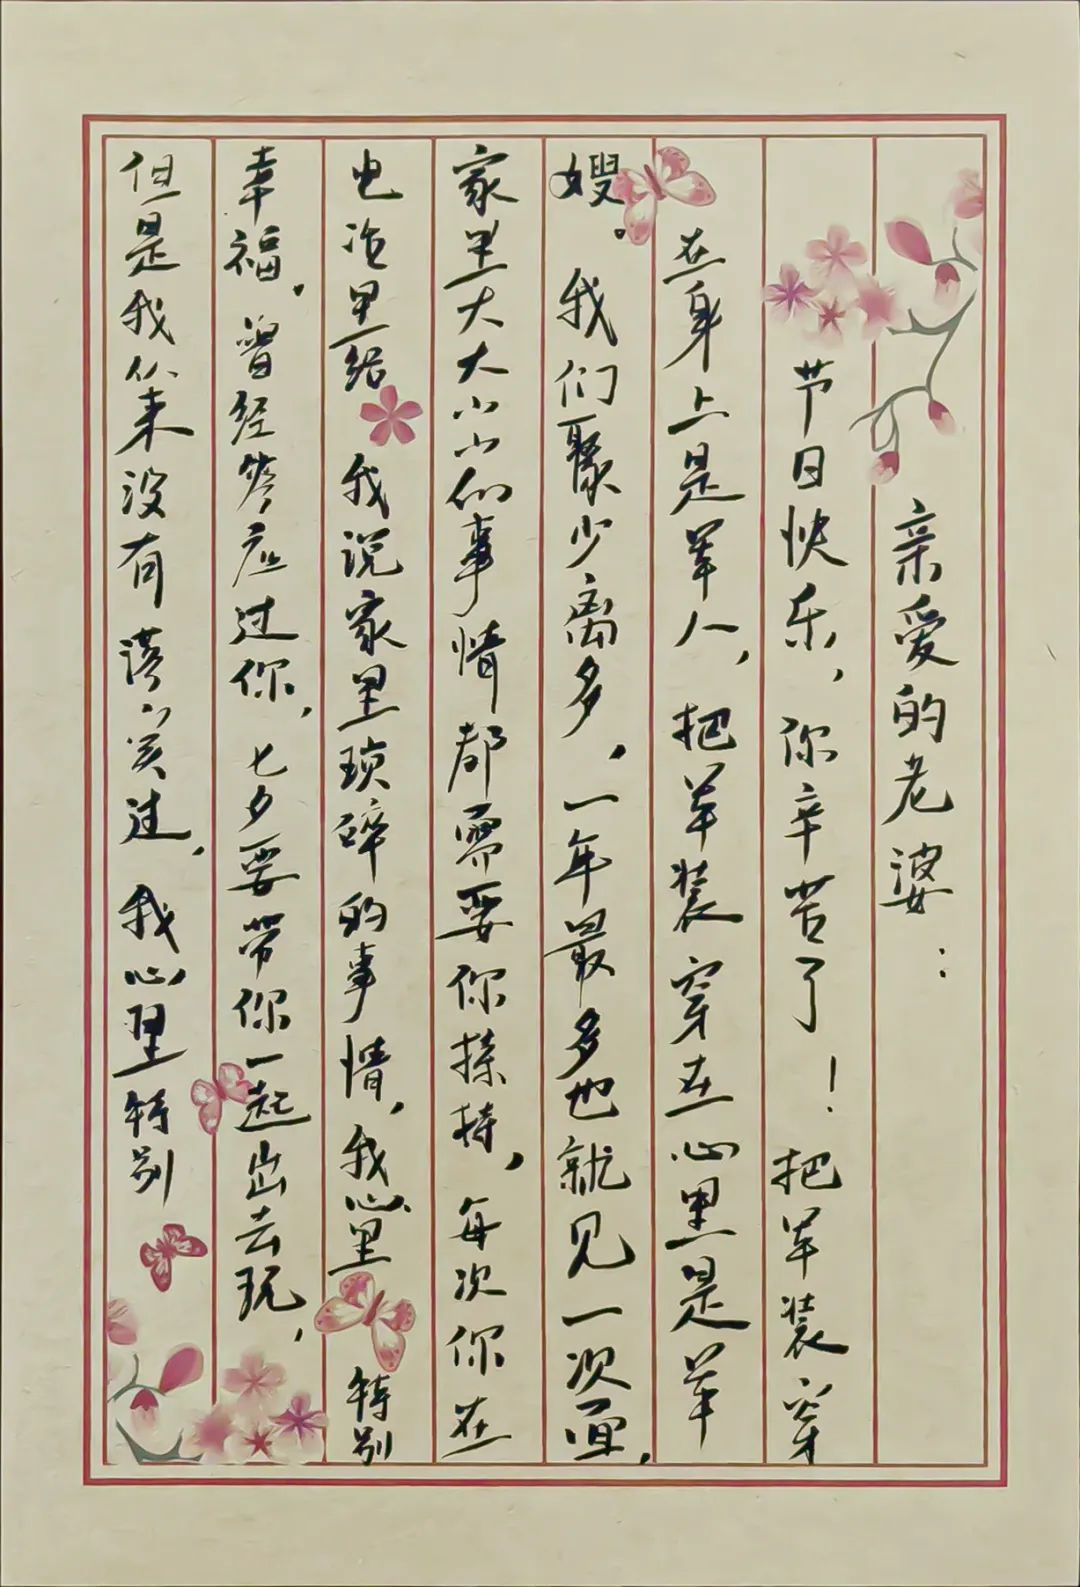 亲爱的老婆：
节日快乐，你辛苦了！把军装穿
在身上是军人，把军装穿在心里是军
嫂。我们聚少离多，一年最多也就见一次面，
家里大大小小的事情都需要你操持，每次你在
电话里给我说家里琐碎的事情，我心里特别
幸福，曾经答应过你，七夕要带你一起出去玩，
但是我从来没有落实过，我心里特别